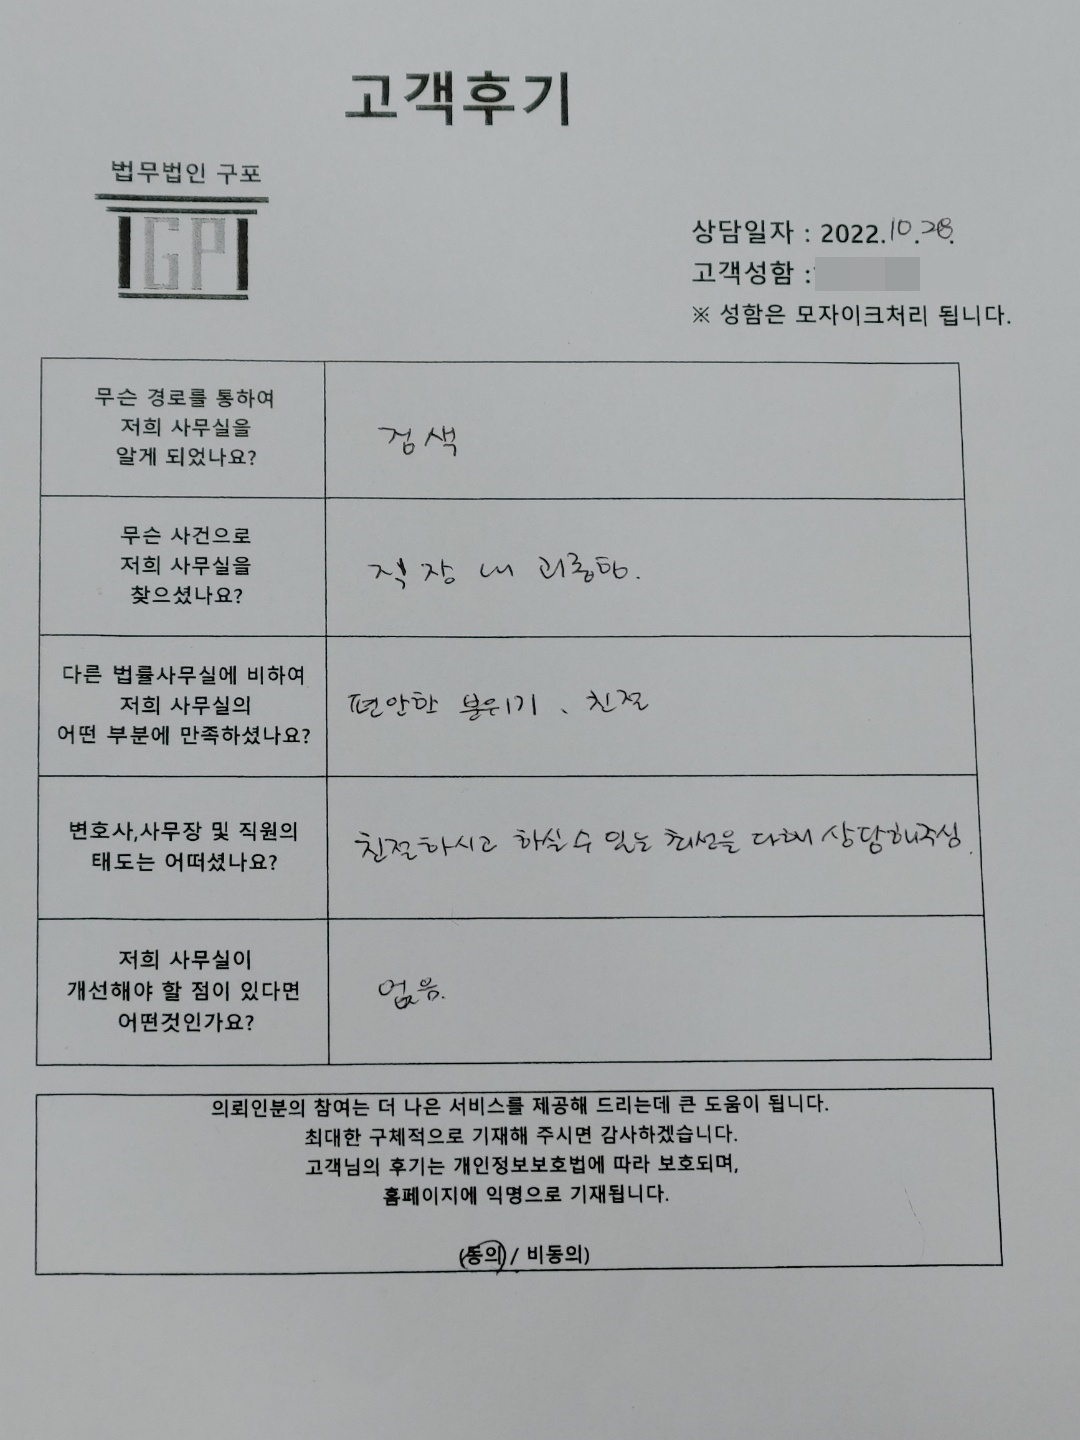 고객후기
법무법인 구포
IGPI
상담일자 : 2022.10.28.
고객성함 :
※ 성함은 모자이크처리 됩니다.
무슨 경로를 통하여
저희 사무실을
알게 되었나요?
검색
무슨 사건으로
저희 사무실을
찾으셨나요?
직장 내 괴롭힘.
다른 법률사무실에 비하여
저희 사무실의
어떤 부분에 만족하셨나요?
편안한 분위기, 친절
변호사,사무장 및 직원의
태도는 어떠셨나요?
친절하시고 하실 수 있는 최선을 다해 상담해주심.
저희 사무실이
개선해야 할 점이 있다면
어떤것인가요?
없음.
의뢰인분의 참여는 더 나은 서비스를 제공해 드리는데 큰 도움이 됩니다.
최대한 구체적으로 기재해 주시면 감사하겠습니다.
고객님의 후기는 개인정보보호법에 따라 보호되며,
홈페이지에 익명으로 기재됩니다.
(동의 / 비동의)